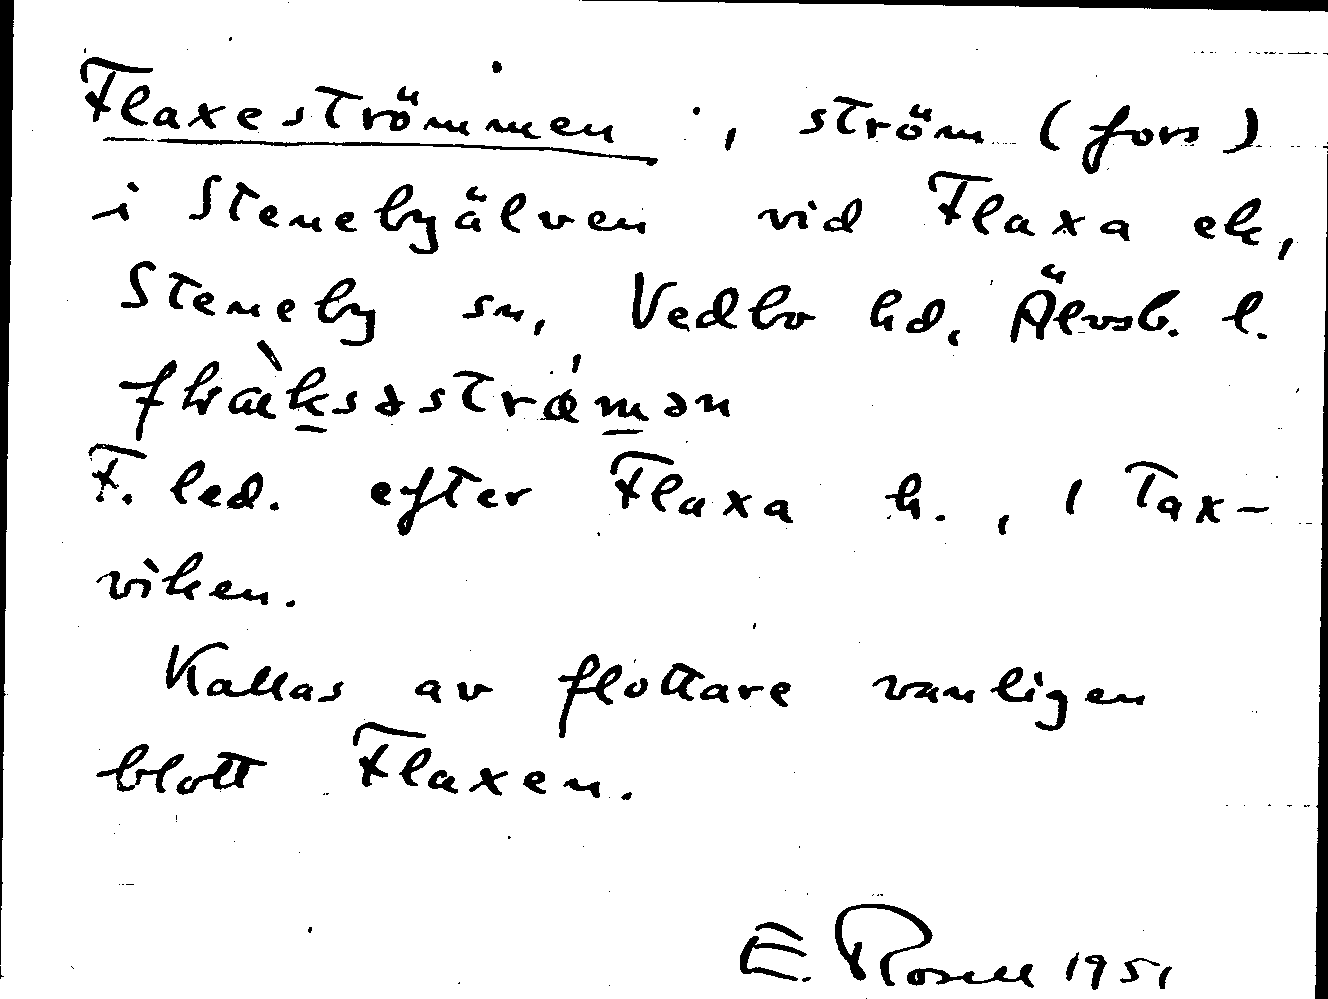 Flaxeströmmen, ström (fors)
i Stenebyälven vid Flaxa ek,
Steneby sn, Vedbo hd, Älvsb. l.
F. led. efter Flaxa h., i Tax-
viken.
Kallas av flottare vanligen
blott Flaxen.
E. Rosell 1951